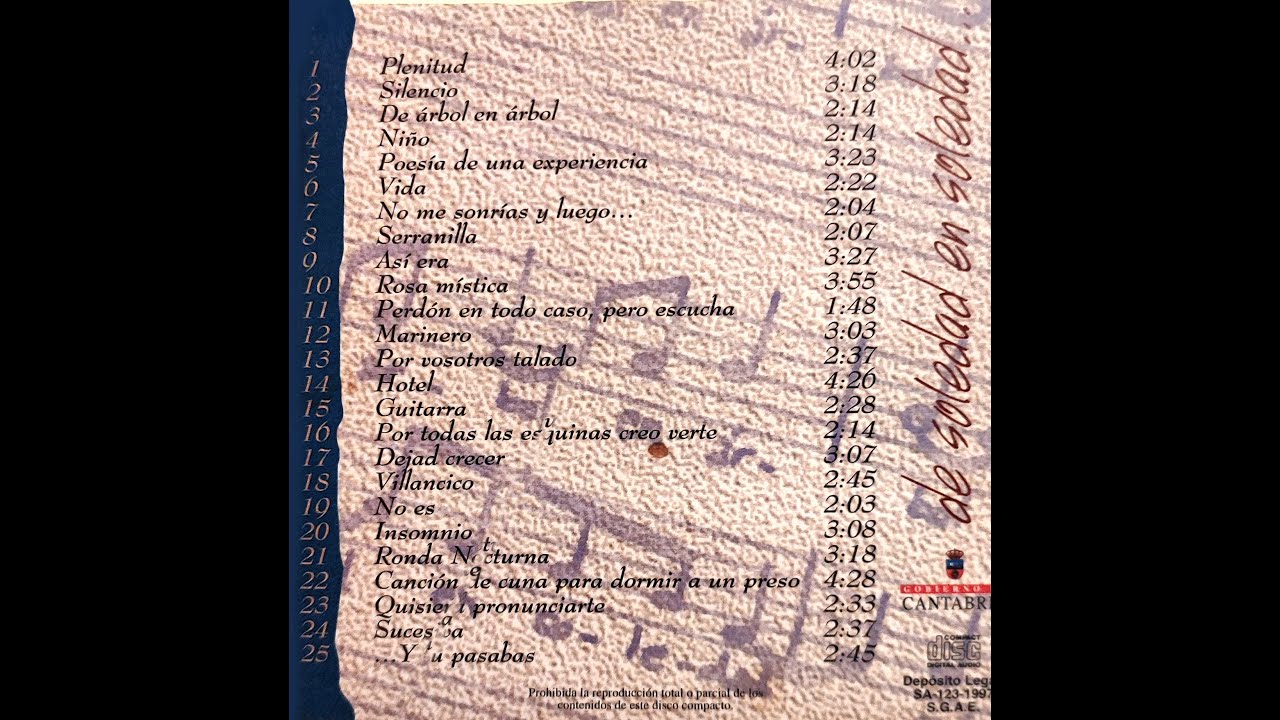 1 Plenitud 4:02
2 Silencio 3:18
3 De árbol en árbol 2:14
4 Niño 2:14
5 Poesía de una experiencia 3:23
6 Vida 2:22
7 No me sonrías y luego... 2:04
8 Serranilla 2:07
9 Así era 3:27
10 Rosa mística 3:55
11 Perdón en todo caso, pero escucha 1:48
12 Marinero 3:03
13 Por vosotros talado 2:37
14 Hotel 4:26
15 Guitarra 2:28
16 Por todas las esquinas creo verte 2:14
17 Dejad crecer 3:07
18 Villancico 2:45
19 No es 2:03
20 Insomnio 3:08
21 Ronda Nocturna 3:18
22 Canción de cuna para dormir a un preso 4:28
23 Quisiera pronunciarte 2:33
24 Sucesiva 2:37
25 ...Y tu pasabas 2:45
de soledad en soledad...
GOBIERNO
CANTABRI
COMPACT
disc
DIGITAL AUDIO
Depósito Lega
SA-123-1997
S.G.A.E.
Prohibida la reproducción total o parcial de los
contenidos de este disco compacto.